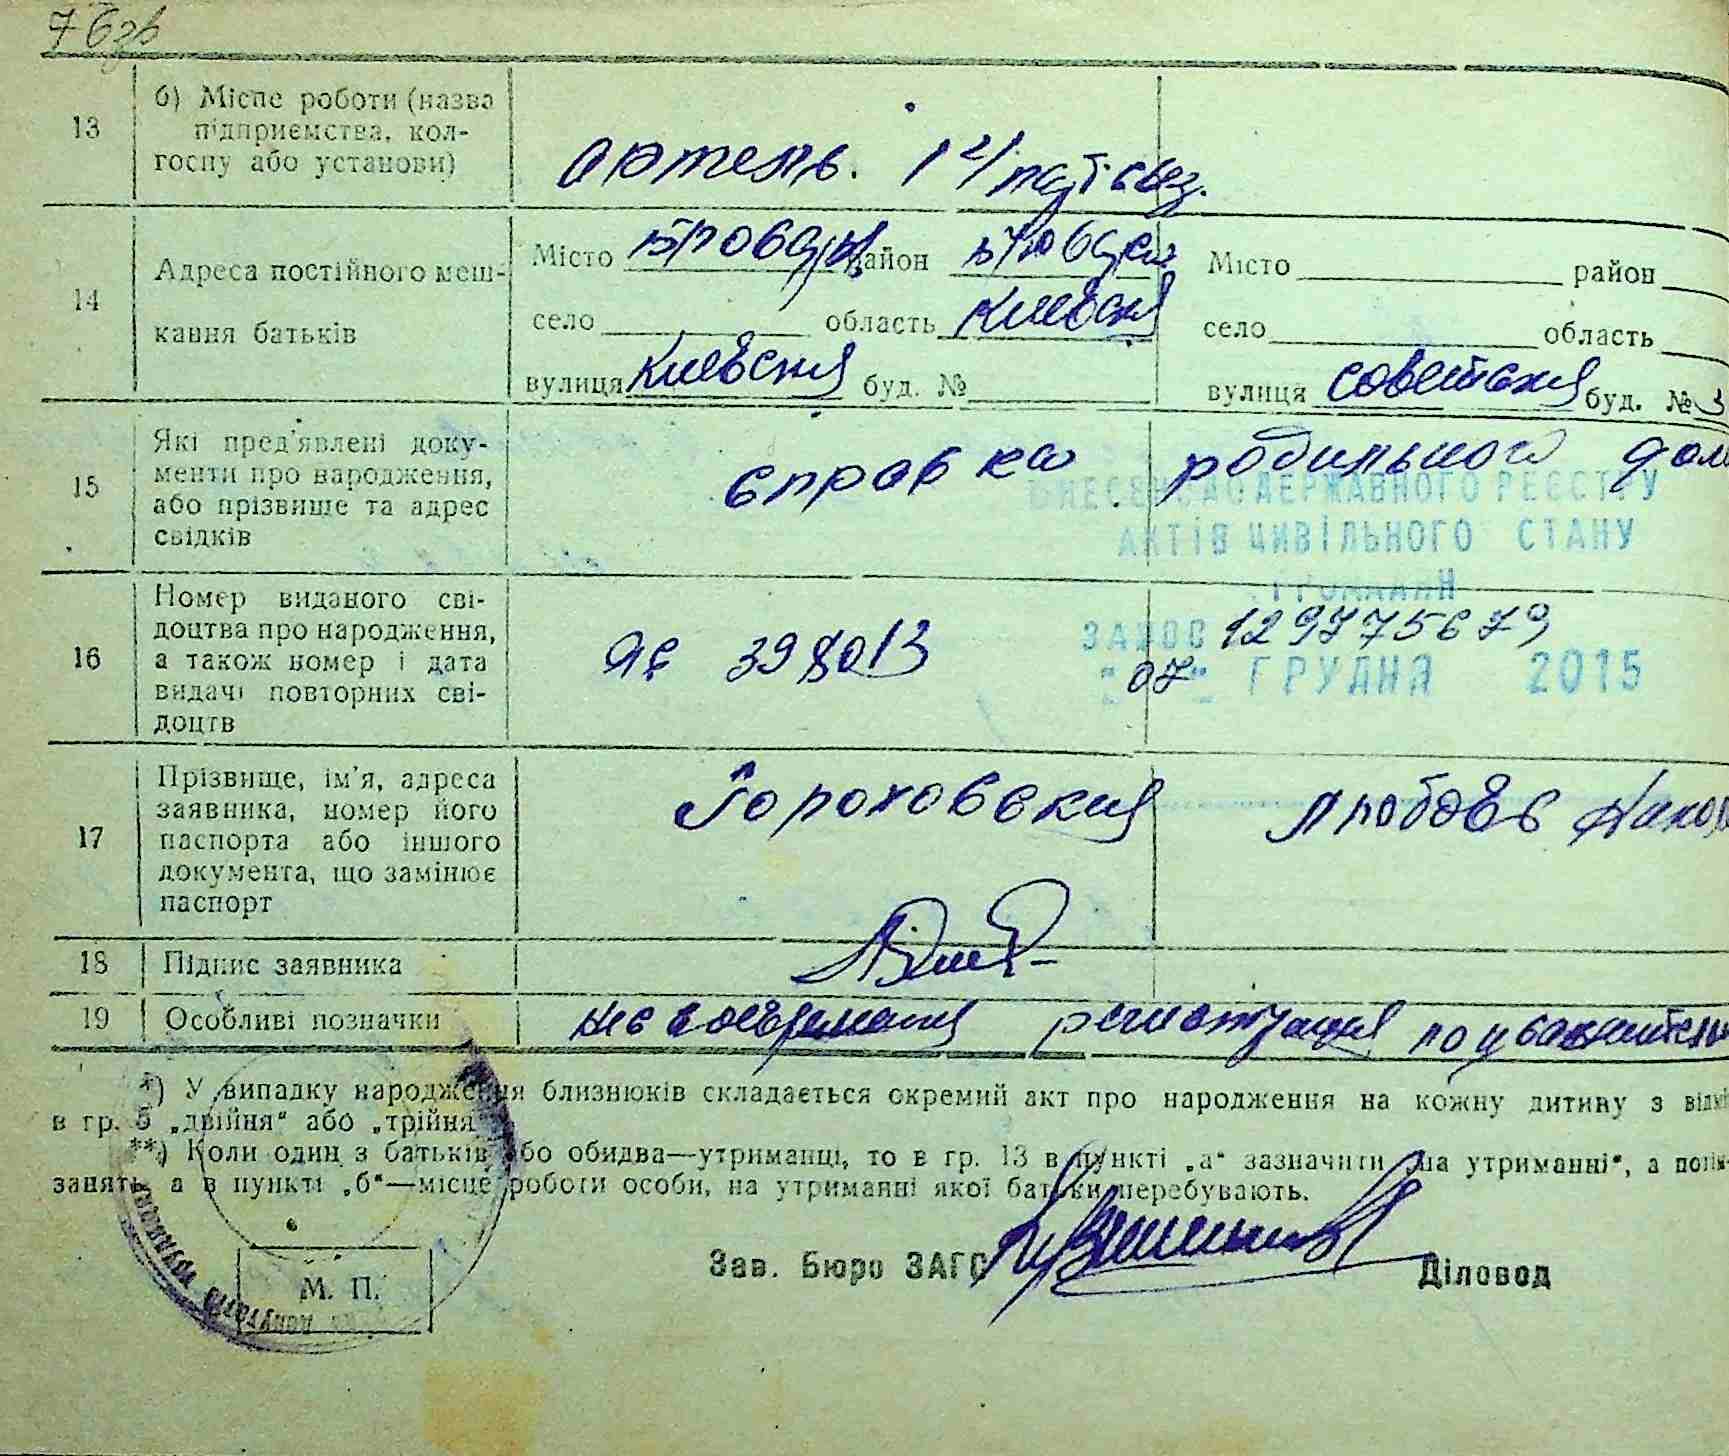 76зв
13
б) Місце роботи (назва
підприємства, кол-
госпу або установи)
артель.
14
Адреса постійного меш-
кання батьків
Місто Бровары район Бровскй
село область Киевская
вулиця Киевская буд. №
Місто район
село область
вулиця Советская буд. № 3
15
Які пред'явлені доку-
менти про народження,
або прізвище та адрес
свідків
справка родильного дом
ДЕРЖАВНОГО РЕЄСТРУ
АКТІВ ЦИВІЛЬНОГО СТАНУ
ГРОМАДЯН
16
Номер виданого сві-
доцтва про народження,
а також номер і дата
видачі повторних сві-
доцтв
ЯЄ 398013
129775679
07 ГРУДНЯ 2015
17
Прізвище, ім'я, адреса
заявника, номер його
паспорта або іншого
документа, що замінює
паспорт
Гороховская
18
Підпис заявника
19
Особливі позначки
несвоевременная регистрация по уважитель
*) У випадку народження близнюків складається окремий акт про народження на кожну дитину з відмі
в гр. 5 „двійня“ або „трійня“
**) Коли один з батьків або обидва—утриманці, то в гр. 13 в пункті „а“ зазначити „на утриманні“, а потім
занять, а в пункті „б“—місце роботи особи, на утриманні якої батьки перебувають.
М. П.
Зав. Бюро ЗАГС
Діловод